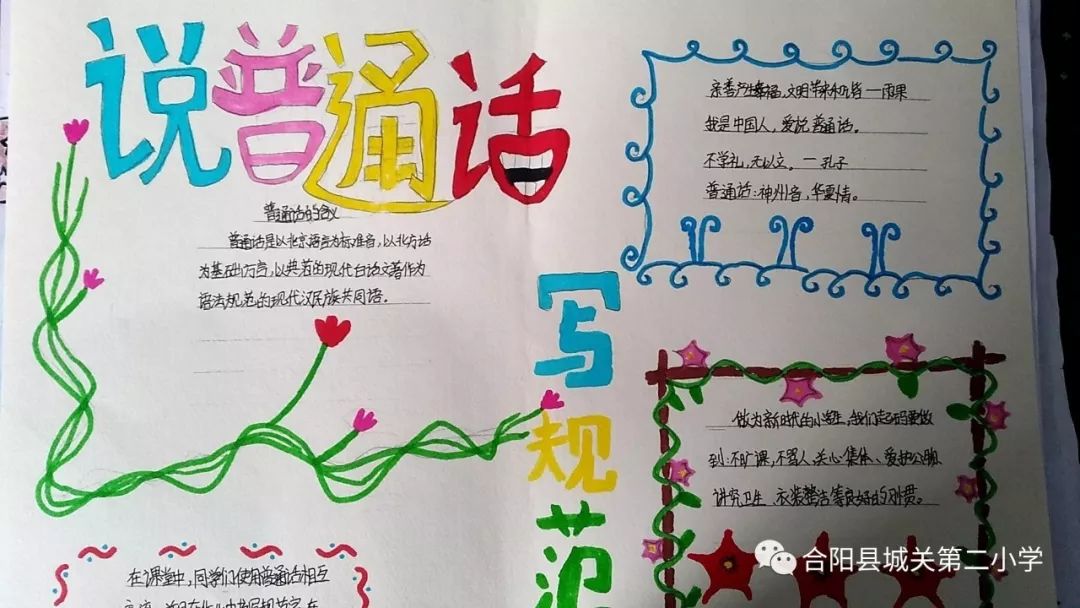 说普通话
普通话的含义
普通话是以北京语音为标准音，以北方话
为基础方言，以典范的现代白话文著作为
语法规范的现代汉民族共同语。
产生幸福，文明带来和谐 一雨果
我是中国人，爱说普通话。
不学礼，无以立。一孔子
普通话：神州音，华夏情。
写
规
范
做为新时代的小学生，我们起码要做
到：不旷课，不骂人、关心集体、爱护公物
讲究卫生、衣装整洁等良好的习惯。
在课堂中，同学们使用普通话相互
合阳县城关第二小学